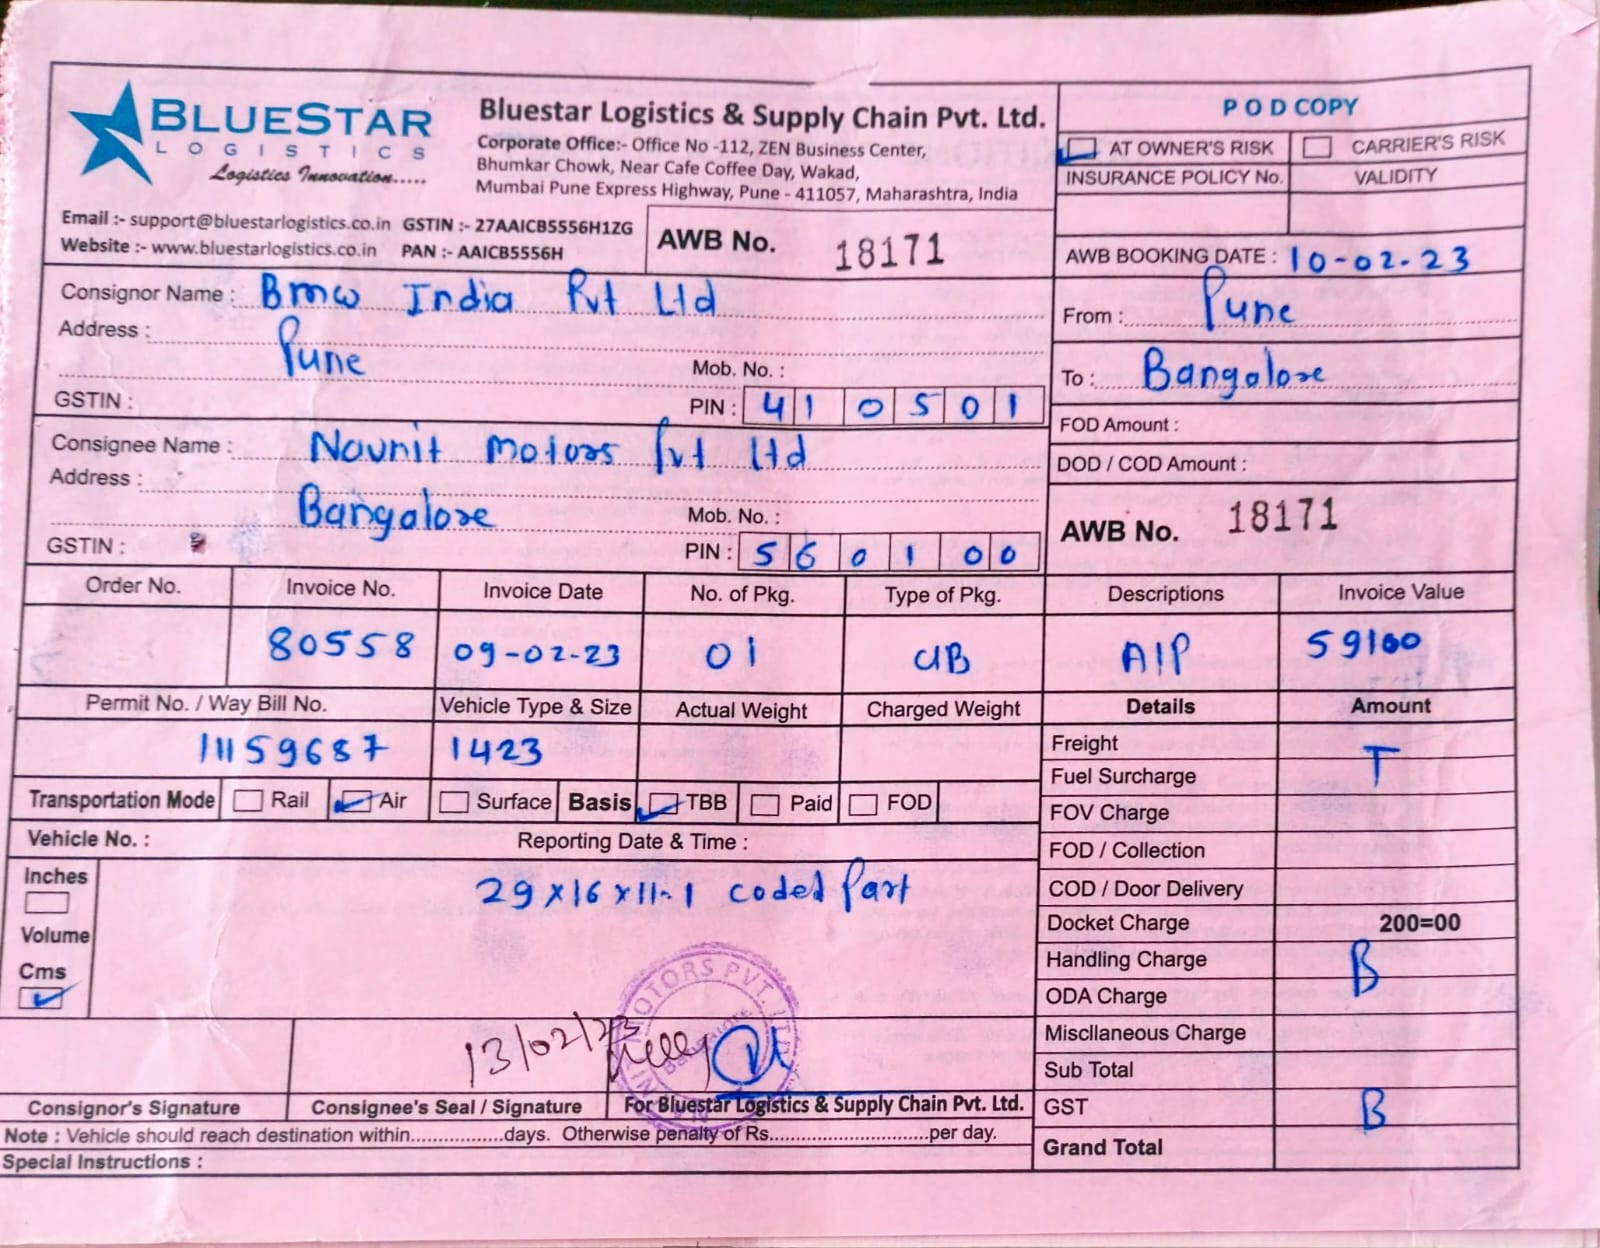 BLUESTAR
LOGISTICS
Logistics Innovation.....
Bluestar Logistics & Supply Chain Pvt. Ltd.
Corporate Office:- Office No -112, ZEN Business Center,
Bhumkar Chowk, Near Cafe Coffee Day, Wakad,
Mumbai Pune Express Highway, Pune - 411057, Maharashtra, India
Email :- support@bluestarlogistics.co.in GSTIN :- 27AAICB5556H1ZG
Website :- www.bluestarlogistics.co.in PAN :- AAICB5556H
AWB No. 18171
POD COPY
AT OWNER'S RISK CARRIER'S RISK
INSURANCE POLICY No. VALIDITY
AWB BOOKING DATE : 10-02-23
From : Pune
To : Bangalore
FOD Amount :
DOD / COD Amount :
AWB No. 18171
Consignor Name : Bmw India Pvt Ltd
Address :
Pune
Mob. No. :
GSTIN : PIN : 410501
Consignee Name : Navnit Motors Pvt Ltd
Address :
Bangalore
Mob. No. :
GSTIN : PIN : 560100
Order No. Invoice No. Invoice Date No. of Pkg. Type of Pkg. Descriptions Invoice Value
80558 09-02-23 01 CIB AIP 59100
Permit No. / Way Bill No. Vehicle Type & Size Actual Weight Charged Weight Details Amount
11159687 1423
Freight T
Fuel Surcharge
FOV Charge
FOD / Collection
COD / Door Delivery
Docket Charge 200=00
Handling Charge B
ODA Charge
Miscllaneous Charge
Sub Total
GST B
Grand Total
Transportation Mode Rail Air Surface Basis TBB Paid FOD
Vehicle No. : Reporting Date & Time :
Inches
Volume
Cms
29x16x11-1 coded Part
13/02/23
MOTORS PVT. LTD
Bangalore
Consignor's Signature Consignee's Seal / Signature For Bluestar Logistics & Supply Chain Pvt. Ltd.
Note : Vehicle should reach destination within.................days. Otherwise penalty of Rs.............................per day.
Special Instructions :